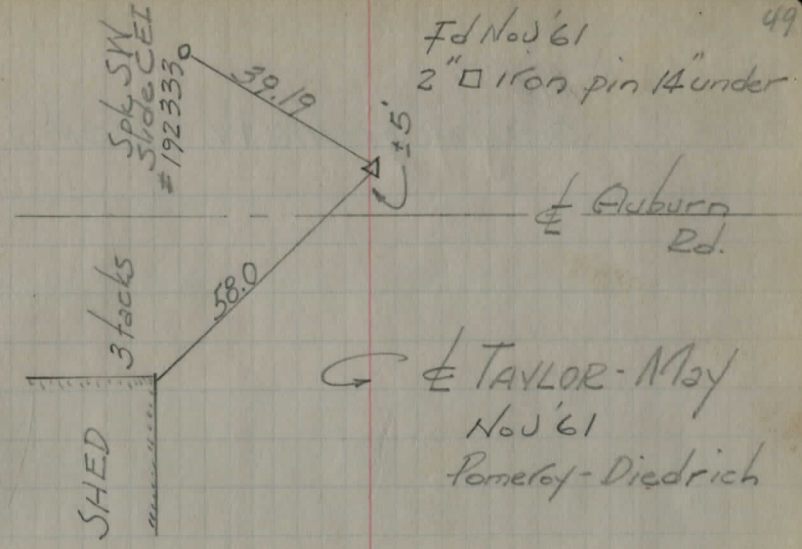 49
Fd Nov '61
2" □ Iron pin 14" under
Spk SW
Side CEI
#192333
39.19
±5'
℄ Auburn
Rd.
58.0
3 tacks
SHED
℄ TAYLOR-May
Nov '61
Pomeroy-Diedrich